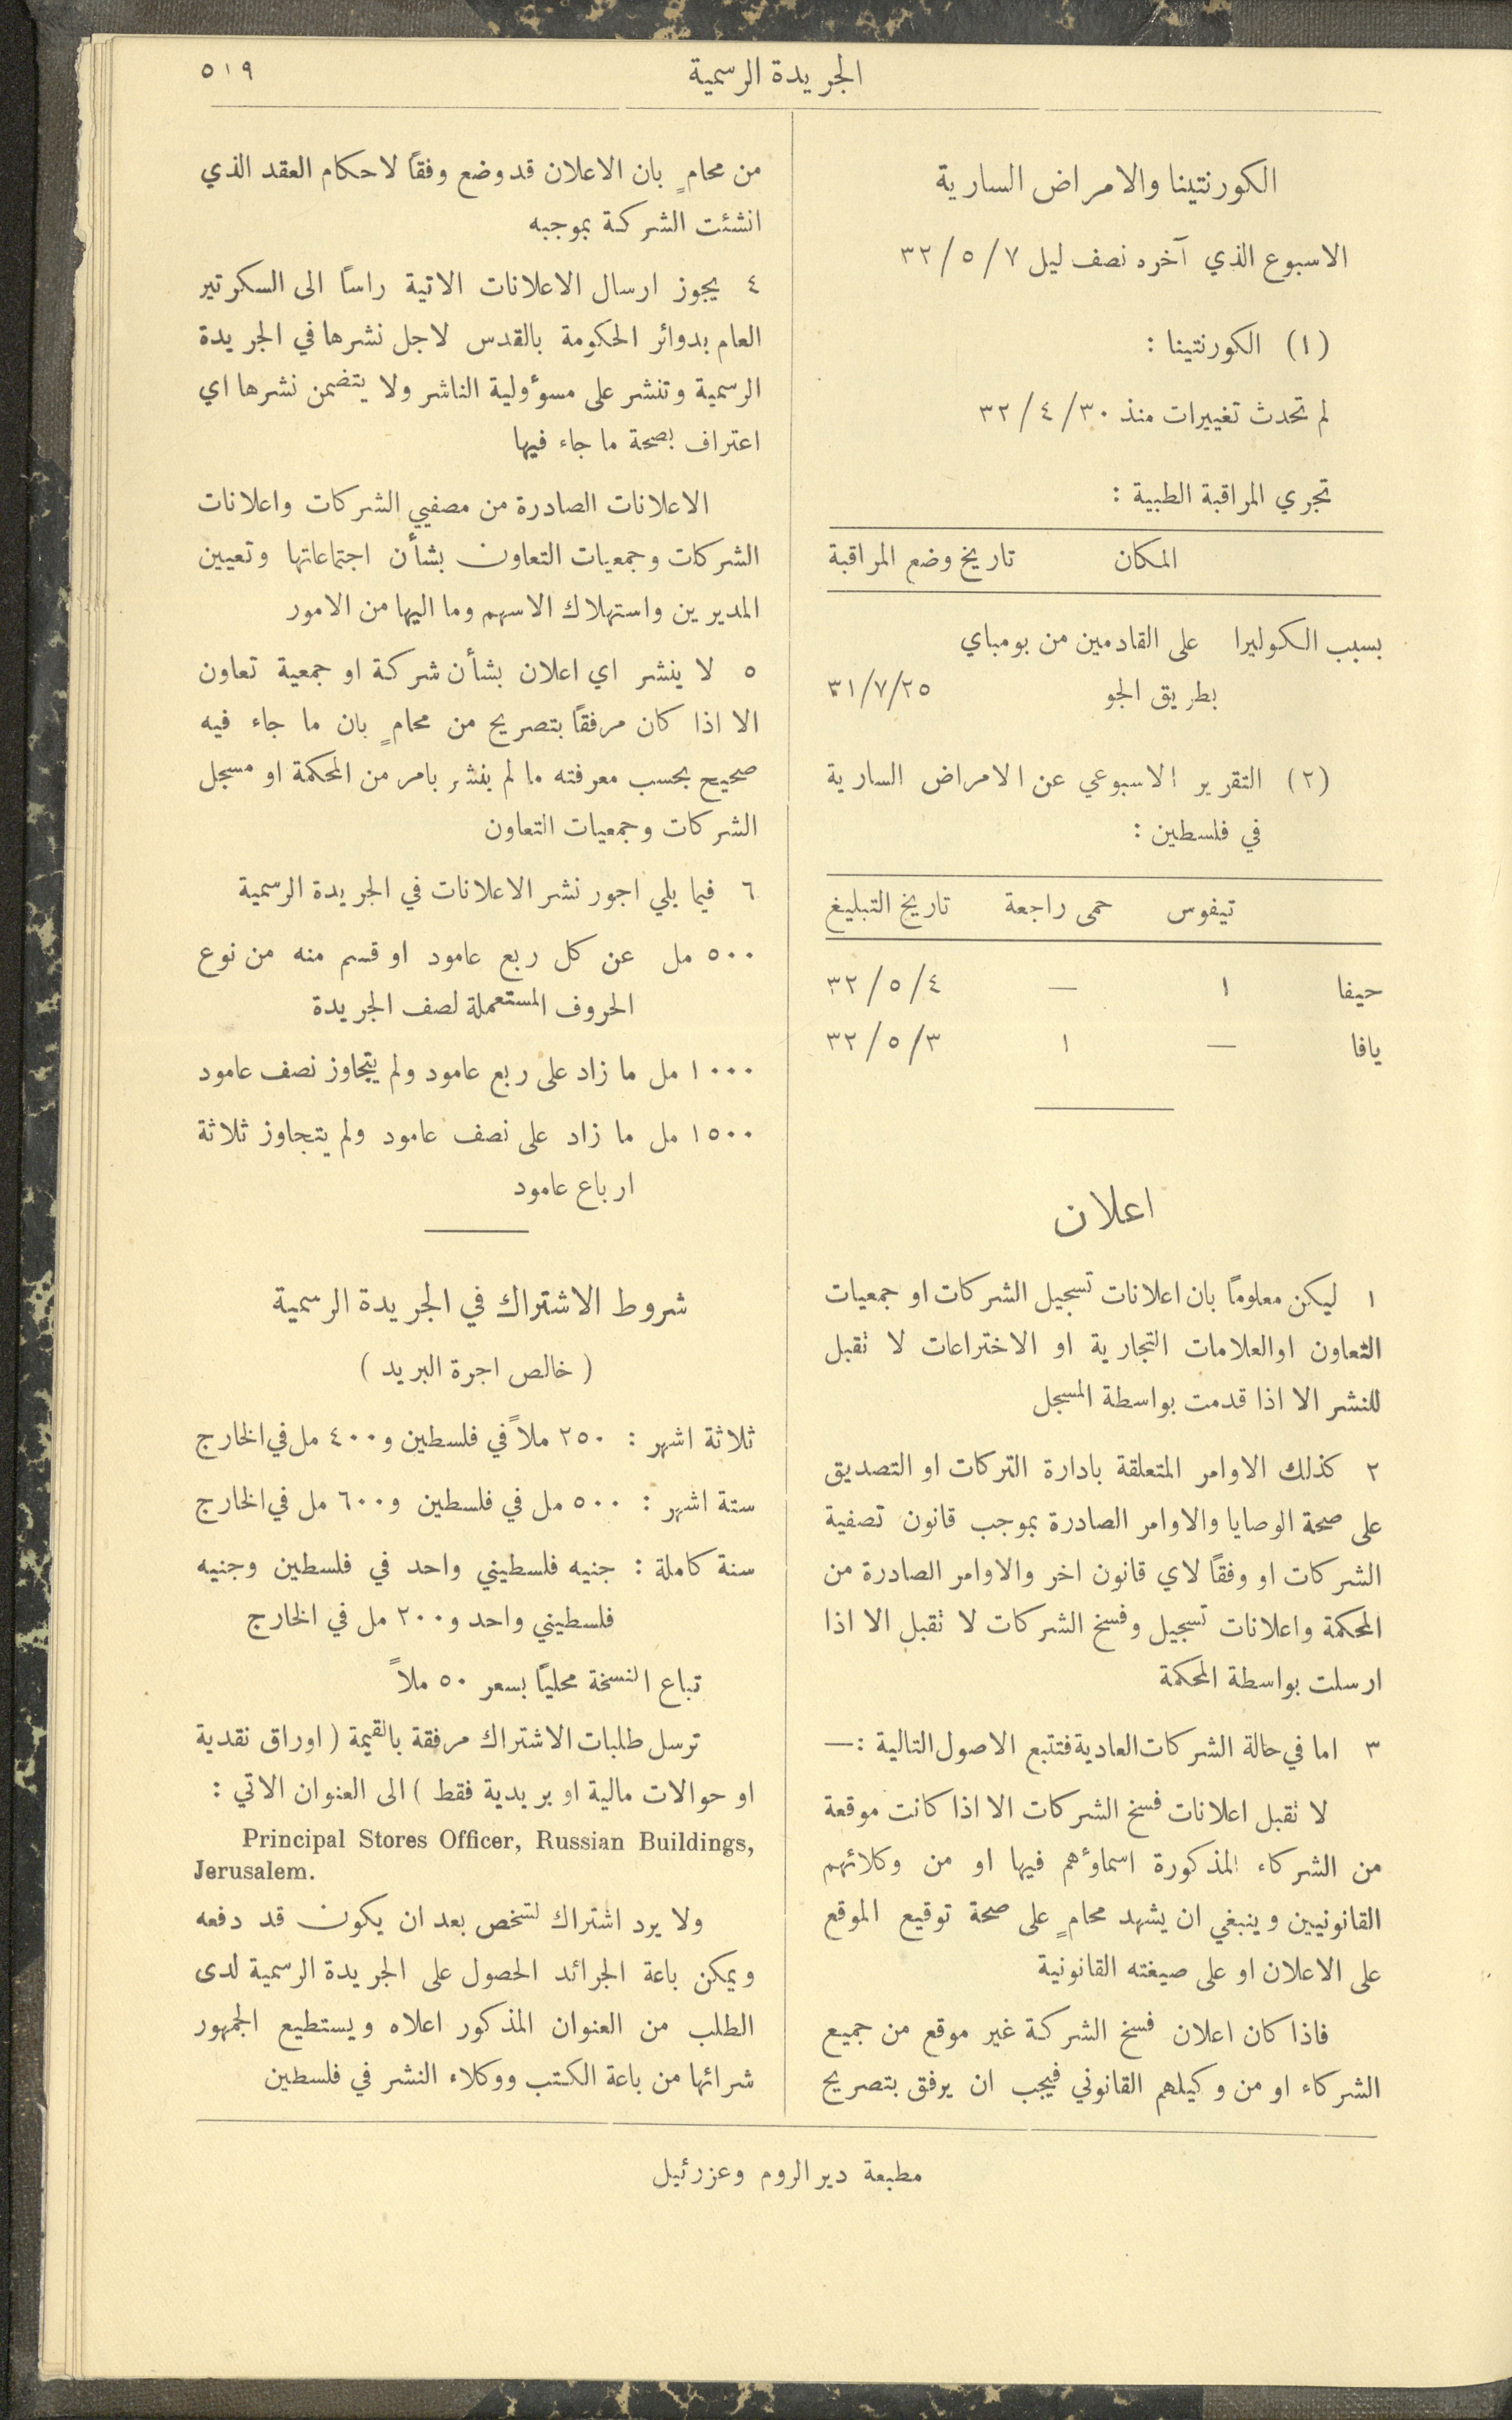 الجريدة الرسمية
٥١٩
الكورنتينا والامراض السارية
الاسبوع الذي آخره نصف ليل ٧/ ٥/ ٣٢
(١) الكورنتينا :
لم تحدث تغييرات منذ ٣٠/ ٤/ ٣٢
تجري المراقبة الطبية :
المكان تاريخ وضع المراقبة
بسبب الكوليرا على القادمين من بومباي
بطريق الجو ٣١/٧/٢٥
(٢) التقرير الاسبوعي عن الامراض السارية
في فلسطين :
تيفوس حمى راجعة تاريخ التبليغ
حيفا ١ — ٤/ ٥/ ٣٢
يافا — ١ ٣/ ٥/ ٣٢
اعلان
١ ليكن معلوماً بان اعلانات تسجيل الشركات او جمعيات
التعاون او العلامات التجارية او الاختراعات لا تقبل
للنشر الا اذا قدمت بواسطة المسجل
٢ كذلك الاوامر المتعلقة بادارة التركات او التصديق
على صحة الوصايا والاوامر الصادرة بموجب قانون تصفية
الشركات او وفقاً لاي قانون اخر والاوامر الصادرة من
المحكمة واعلانات تسجيل وفسخ الشركات لا تقبل الا اذا
ارسلت بواسطة المحكمة
٣ اما في حالة الشركات العادية فتتبع الاصول التالية :—
لا تقبل اعلانات فسخ الشركات الا اذا كانت موقعة
من الشركاء المذكورة اسماؤهم فيها او من وكلائهم
القانونيين وينبغي ان يشهد محامٍ على صحة توقيع الموقع
على الاعلان او على صيغته القانونية
فاذا كان اعلان فسخ الشركة غير موقع من جميع
الشركاء او من وكيلهم القانوني فيجب ان يرفق بتصريح
من محامٍ بان الاعلان قد وضع وفقاً لاحكام العقد الذي
انشئت الشركة بموجبه
٤ يجوز ارسال الاعلانات الاتية راساً الى السكرتير
العام بدوائر الحكومة بالقدس لاجل نشرها في الجريدة
الرسمية وتنشر على مسؤولية الناشر ولا يتضمن نشرها اي
اعتراف بصحة ما جاء فيها
الاعلانات الصادرة من مصفيي الشركات واعلانات
الشركات وجمعيات التعاون بشأن اجتماعاتها وتعيين
المديرين واستهلاك الاسهم وما اليها من الامور
٥ لا ينشر اي اعلان بشأن شركة او جمعية تعاون
الا اذا كان مرفقاً بتصريح من محامٍ بان ما جاء فيه
صحيح بحسب معرفته ما لم ينشر بامر من المحكمة او مسجل
الشركات وجمعيات التعاون
٦ فيما يلي اجور نشر الاعلانات في الجريدة الرسمية
٥٠٠ مل عن كل ربع عامود او قسم منه من نوع
الحروف المستعملة لصف الجريدة
١٠٠٠ مل ما زاد على ربع عامود ولم يتجاوز نصف عامود
١٥٠٠ مل ما زاد على نصف عامود ولم يتجاوز ثلاثة
ارباع عامود
شروط الاشتراك في الجريدة الرسمية
( خالص اجرة البريد )
ثلاثة اشهر : ٢٥٠ ملاً في فلسطين و٤٠٠ مل في الخارج
ستة اشهر : ٥٠٠ مل في فلسطين و٦٠٠ مل في الخارج
سنة كاملة : جنيه فلسطيني واحد في فلسطين وجنيه
فلسطيني واحد و٢٠٠ مل في الخارج
تباع النسخة محلياً بسعر ٥٠ ملاً
ترسل طلبات الاشتراك مرفقة بالقيمة ( اوراق نقدية
او حوالات مالية او بريدية فقط ) الى العنوان الاتي :
Principal Stores Officer, Russian Buildings,
Jerusalem.
ولا يرد اشتراك لشخص بعد ان يكون قد دفعه
ويمكن باعة الجرائد الحصول على الجريدة الرسمية لدى
الطلب من العنوان المذكور اعلاه ويستطيع الجمهور
شرائها من باعة الكتب ووكلاء النشر في فلسطين
مطبعة دير الروم وعزرئيل